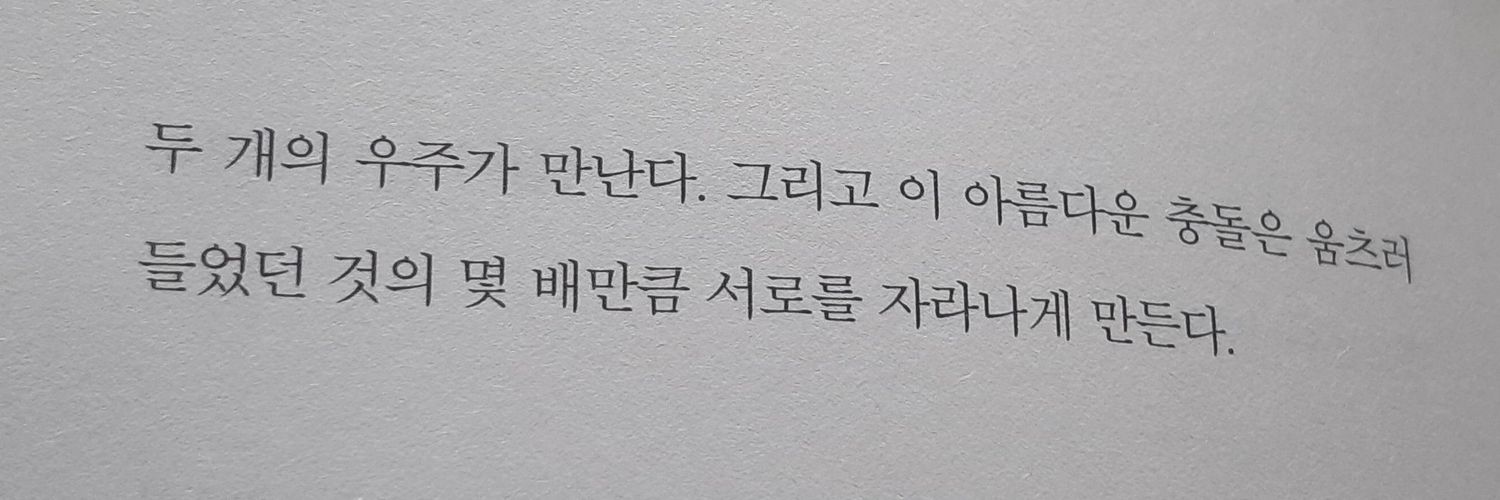 두 개의 우주가 만난다. 그리고 이 아름다운 충돌은 움츠러
들었던 것의 몇 배만큼 서로를 자라나게 만든다.